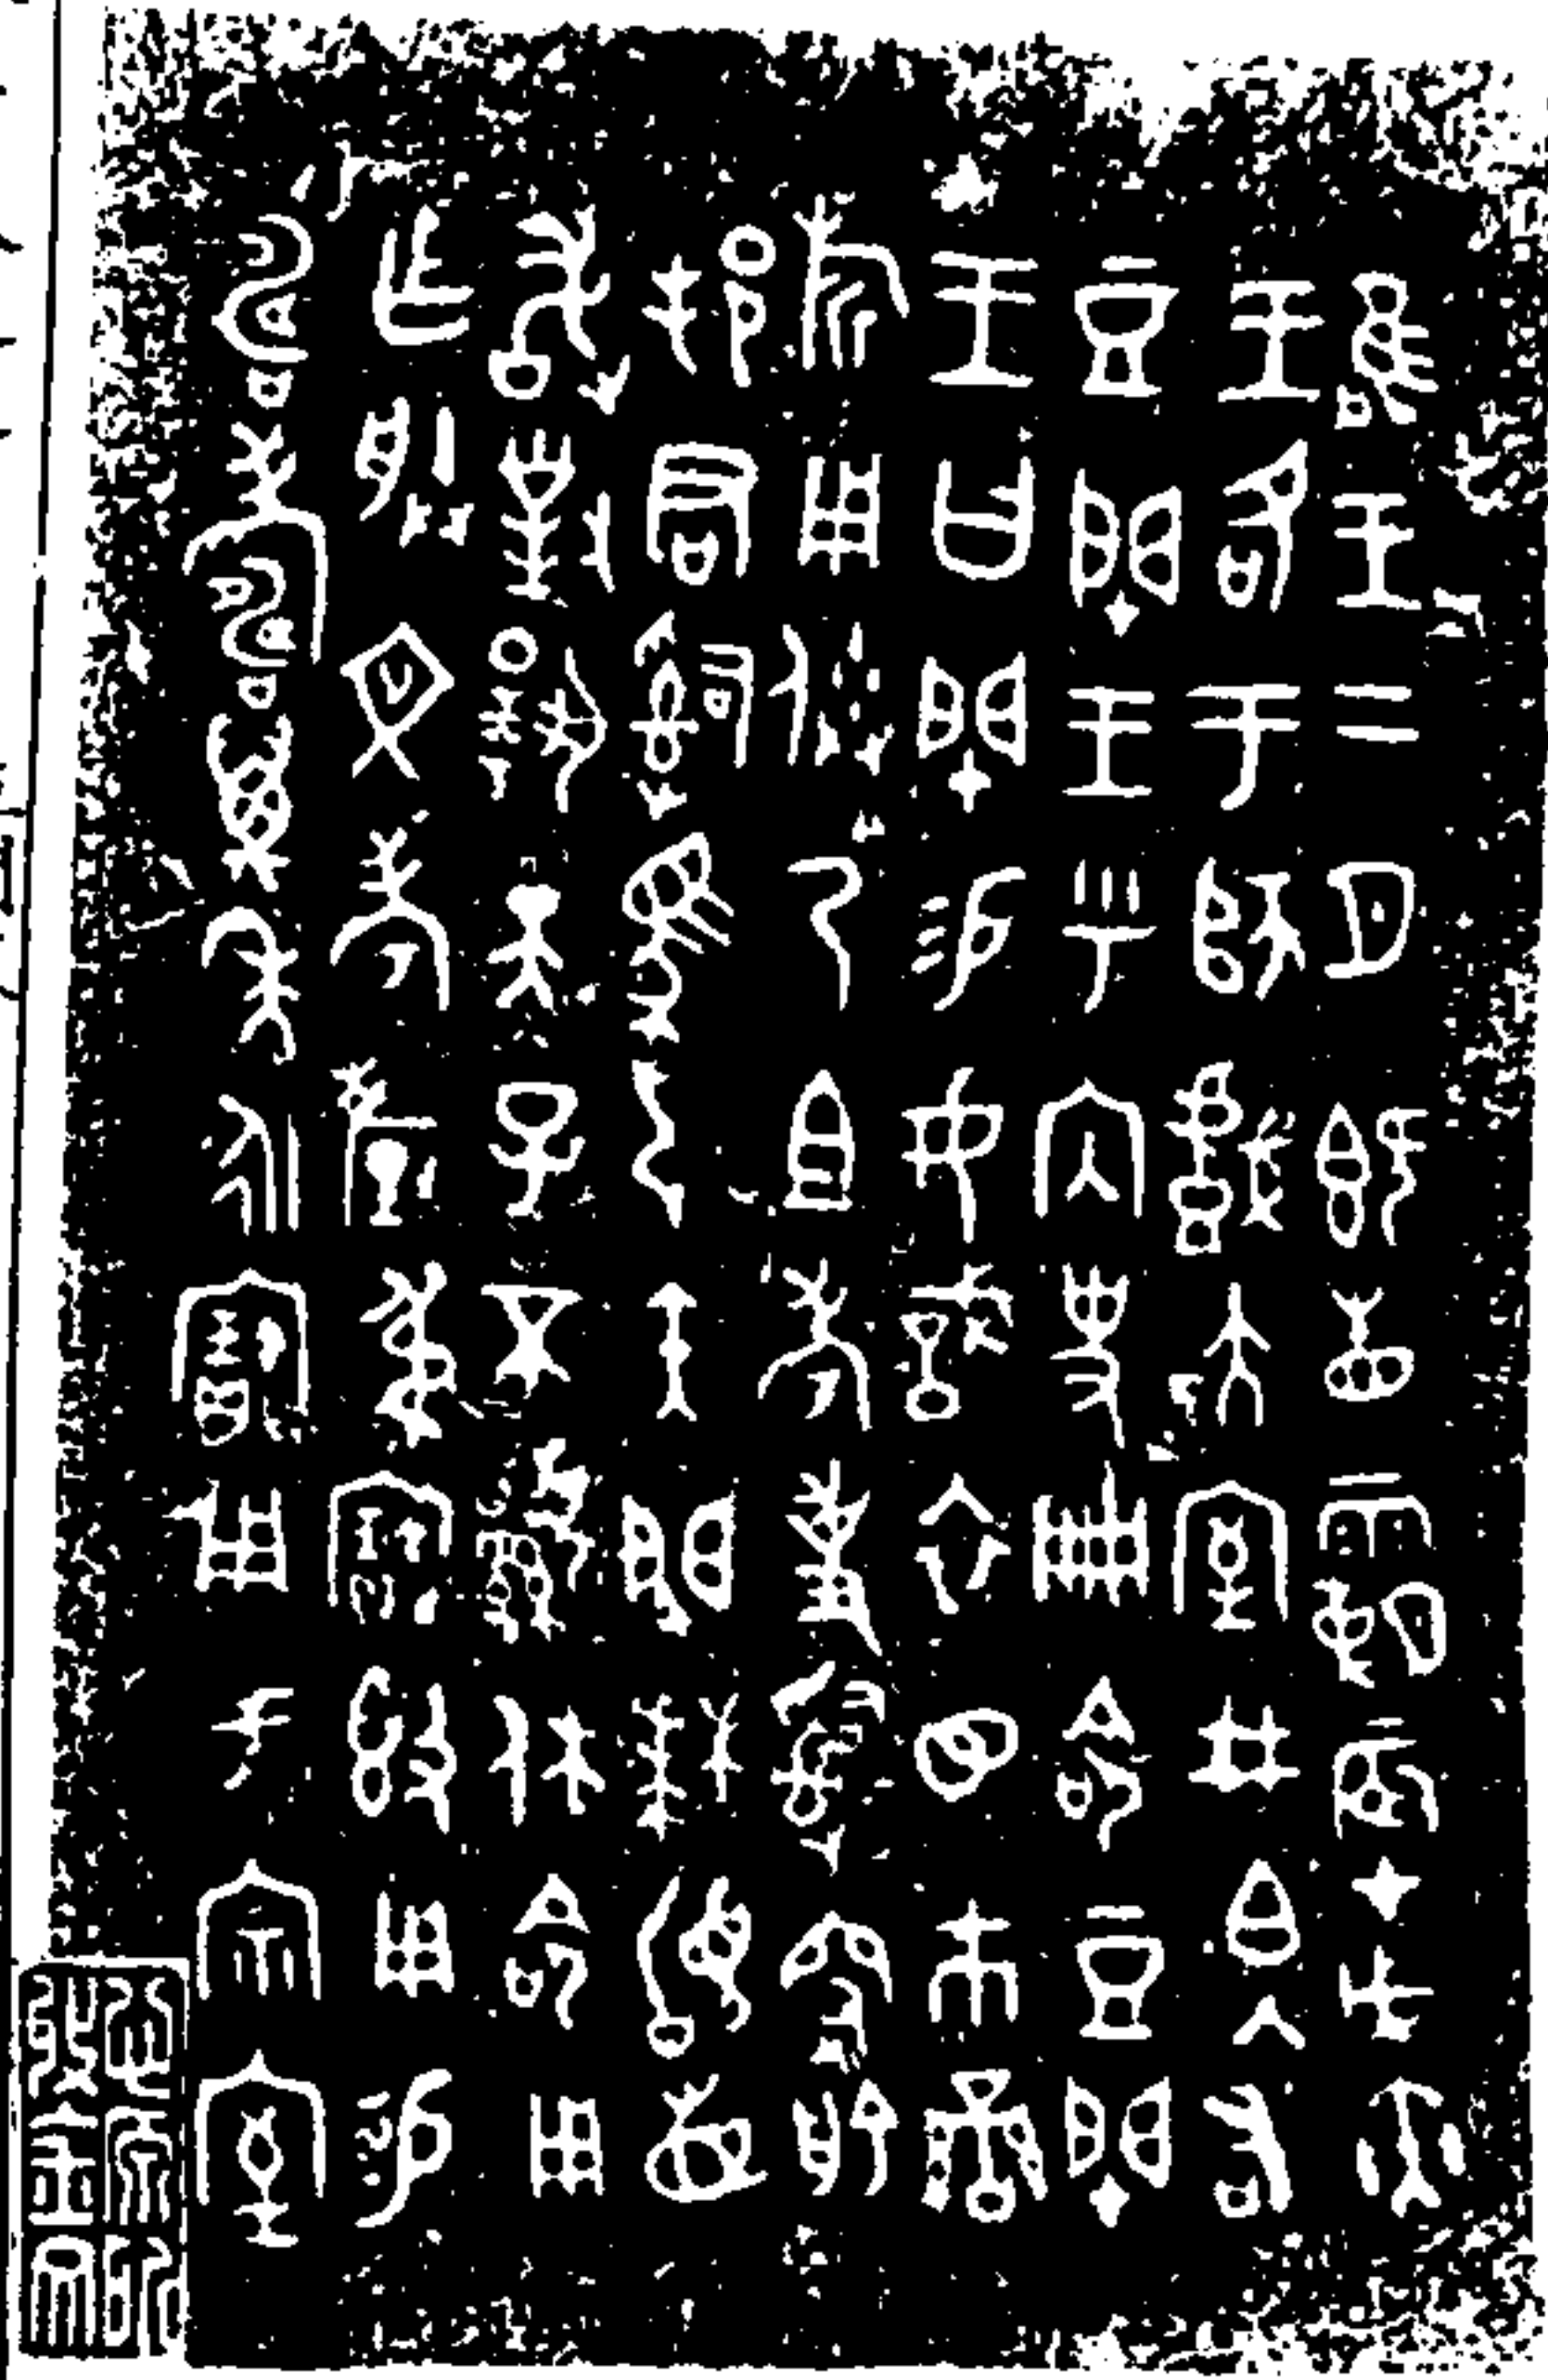 唯王二月既眚霸辰才戊寅
王各于師戲大室井白入右
豆閉王乎內史冊命豆閉
王曰閉易女戠衣市䜌
旂用俗乃且考事𤔲俞
邦君𤔲馬弓矢閉拜𩒨首
敢對揚天子不顯休命用
乍朕文考釐弔寶𣪘用易
壽萬年永寶用于宗室